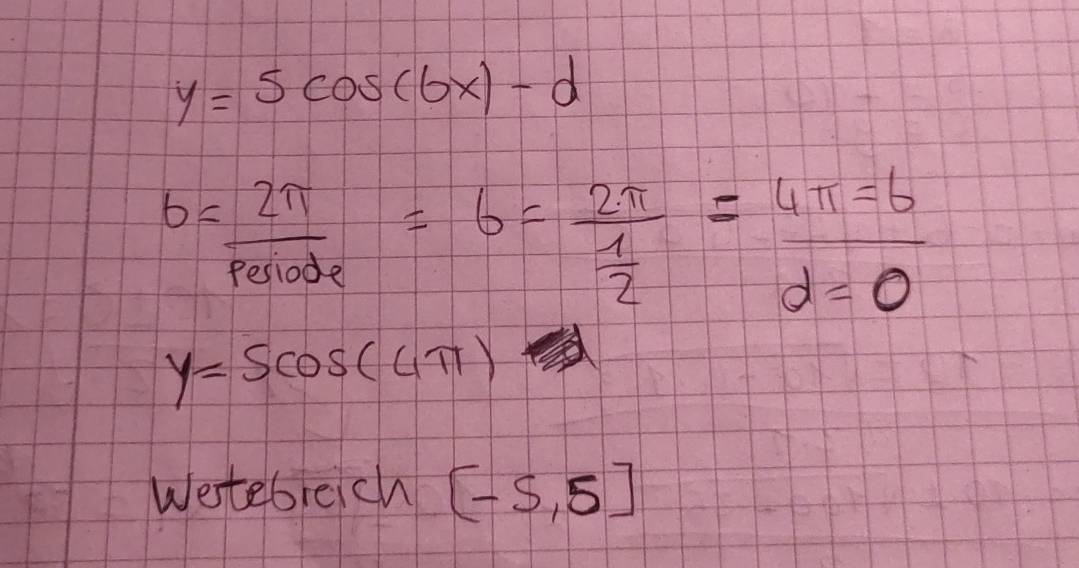 y = 5 cos(bx) - d
b = 2π/Periode = b = 2·π/(1/2) = 4π = b
d = 0
y = 5cos(4π)
Wertebreich [-5,5]